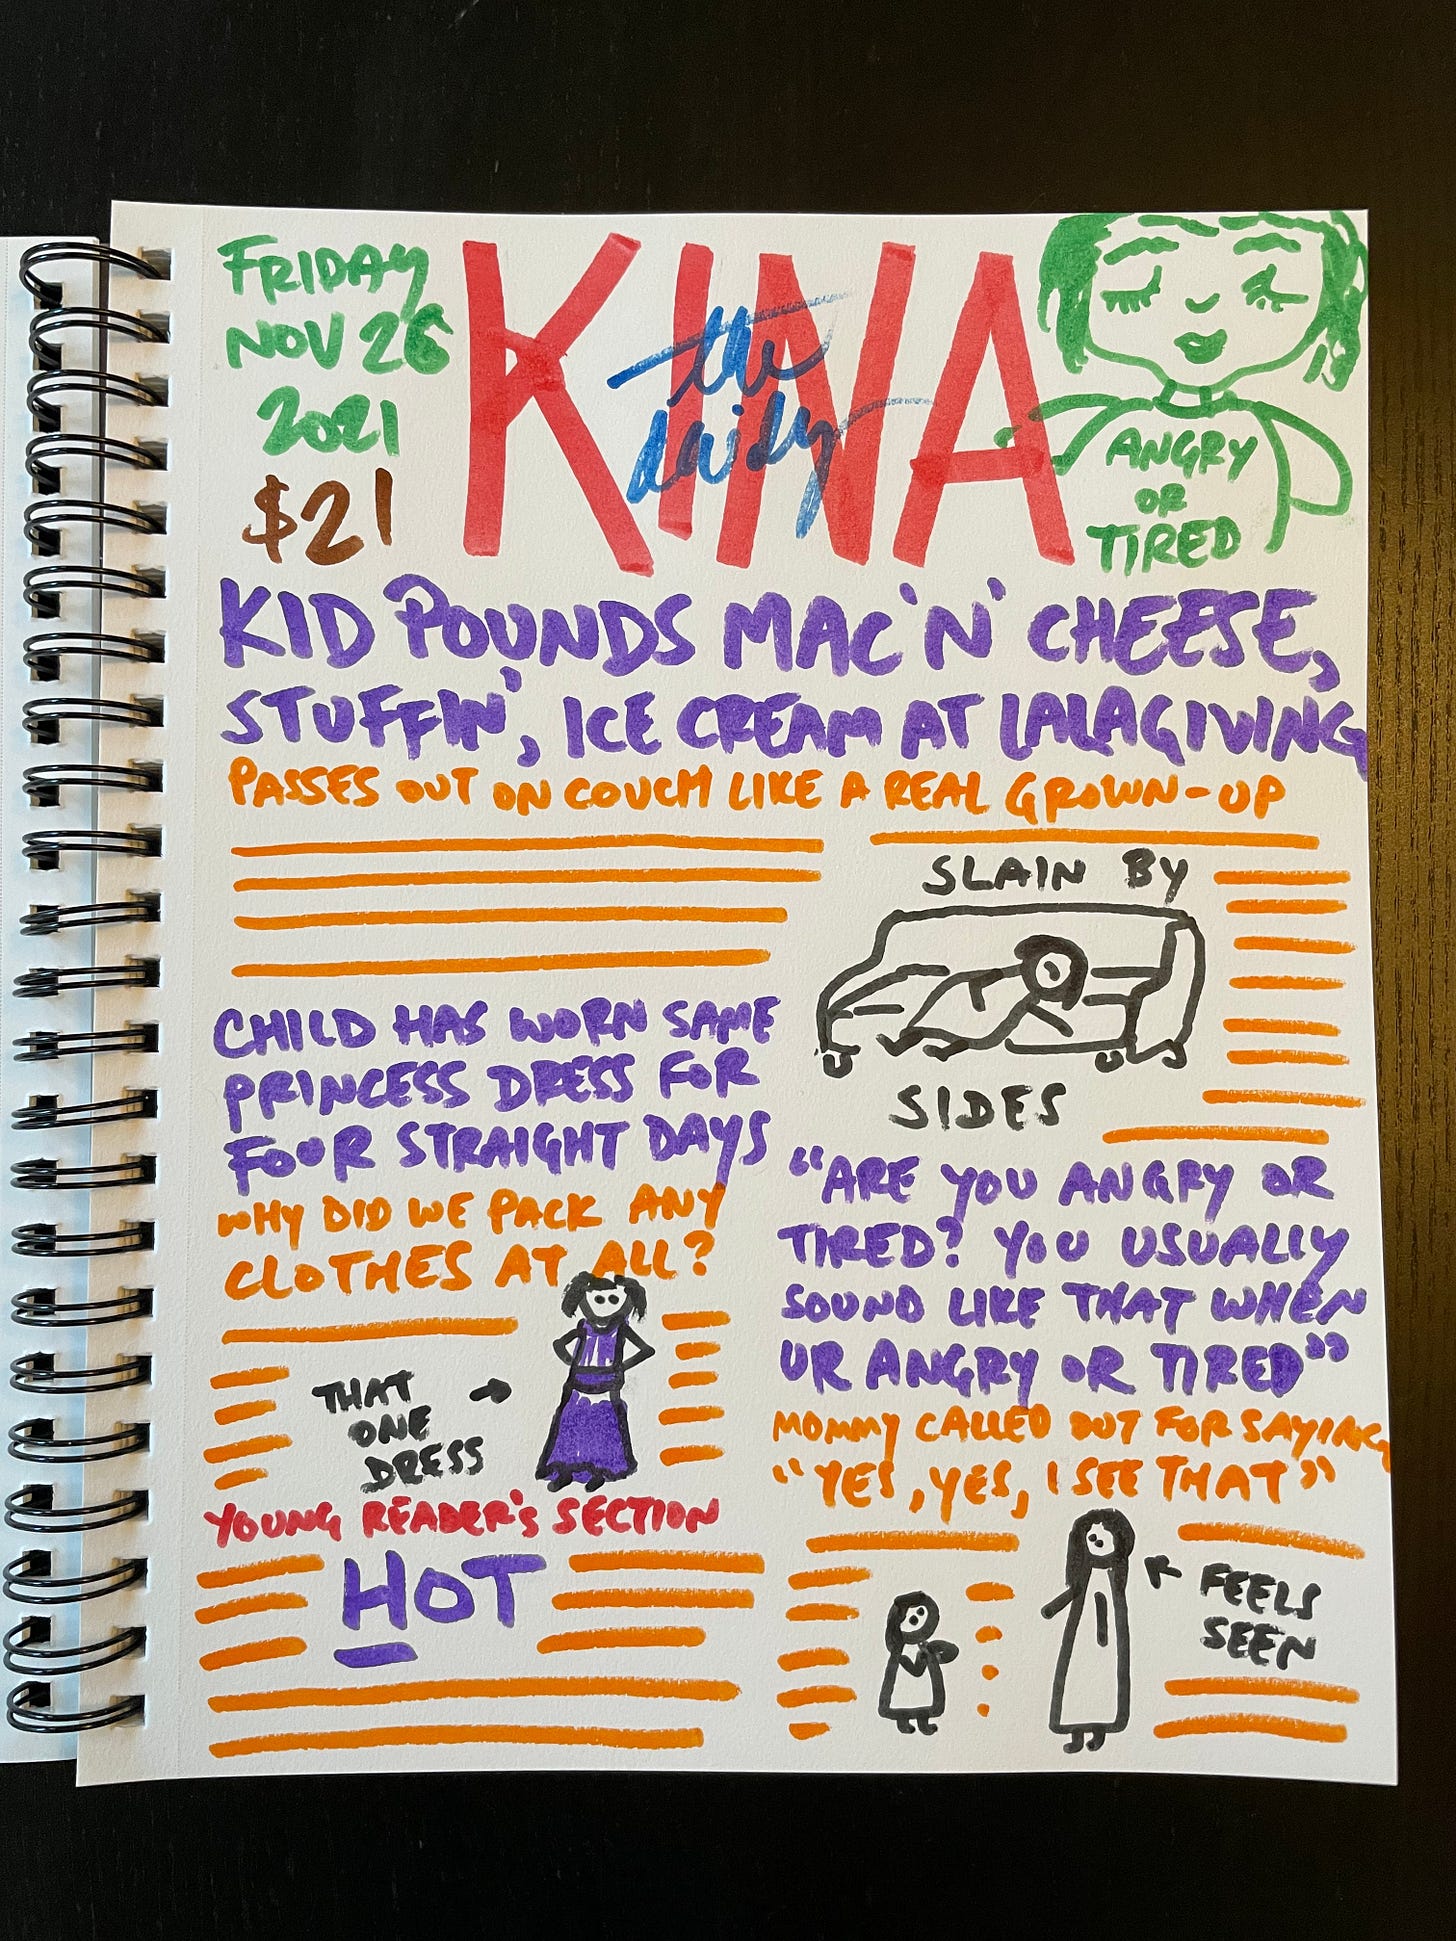 FRIDAY
NOV 26
2021
$21
KINA
the
daily
ANGRY
OR
TIRED
KID POUNDS MAC 'N' CHEESE,
STUFFIN', ICE CREAM AT LALAGIVING
PASSES OUT ON COUCH LIKE A REAL GROWN-UP
SLAIN BY
SIDES
CHILD HAS WORN SAME
PRINCESS DRESS FOR
FOUR STRAIGHT DAYS
WHY DID WE PACK ANY
CLOTHES AT ALL?
THAT
ONE
DRESS
"ARE YOU ANGRY OR
TIRED? YOU USUALLY
SOUND LIKE THAT WHEN
UR ANGRY OR TIRED"
MOMMY CALLED OUT FOR SAYING,
"YES, YES, I SEE THAT"
FEELS
SEEN
YOUNG READER'S SECTION
HOT